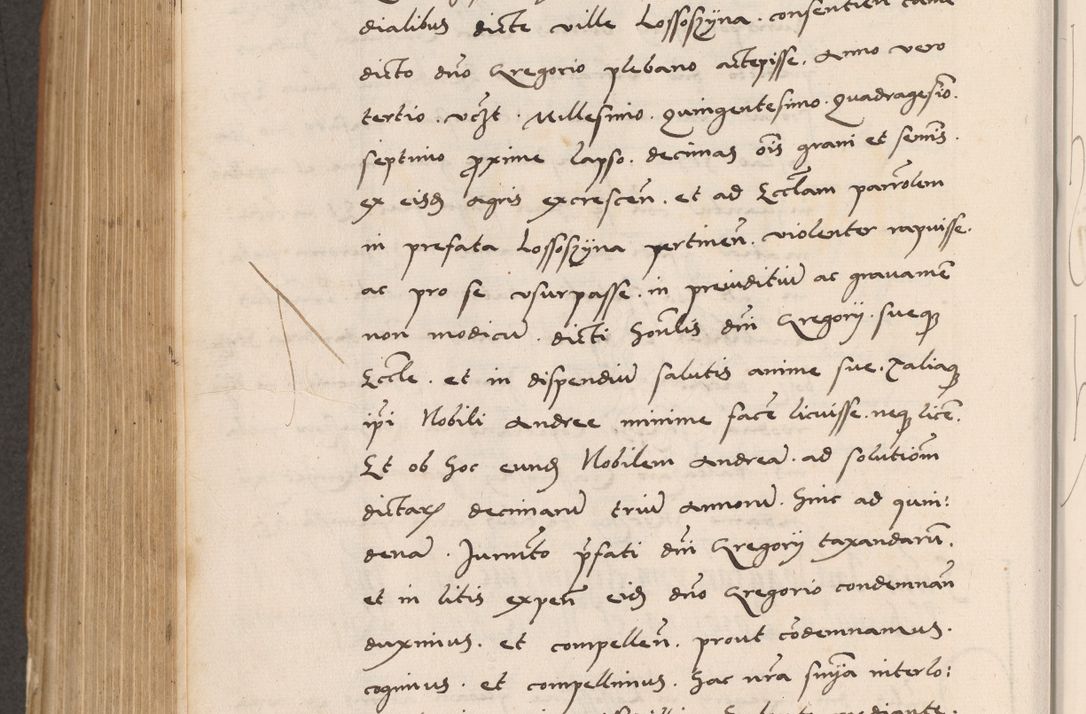 dialibus dicte ville Lossoszyna . consentien
dicto dno Gregorio plebano accepisse . Anno vero
tertio . vczt . Millesimo . Quingentesimo . Quadragesio .
septimo proxime lapso . decimas ois grani et semis .
ex eisd agris excrescen . et ad Ecclam parrolem
in prefata Lossoszyna pertinen . violenter rapuisse .
ac pro se vsurpasse . in preiuditiu ac grauamen
non modicu . dicti honlis dni Gregorij . sueq
Eccle . et in dispendiu salutis anime sue . Taliaq
ipi Nobili Andree minime face licuisse . neq lice .
Et ob hoc eund Nobilem Andrea . ad solutiom
dictar decimaru triu Annoru . hinc ad quin:
dena . Juramto pfati dni Gregorij taxandaru .
et in litis expen eid dno Gregorio condemnan
duximus . et compellen . prout codemnamus .
cogimus . et compellimus . hac nra snia interlo: